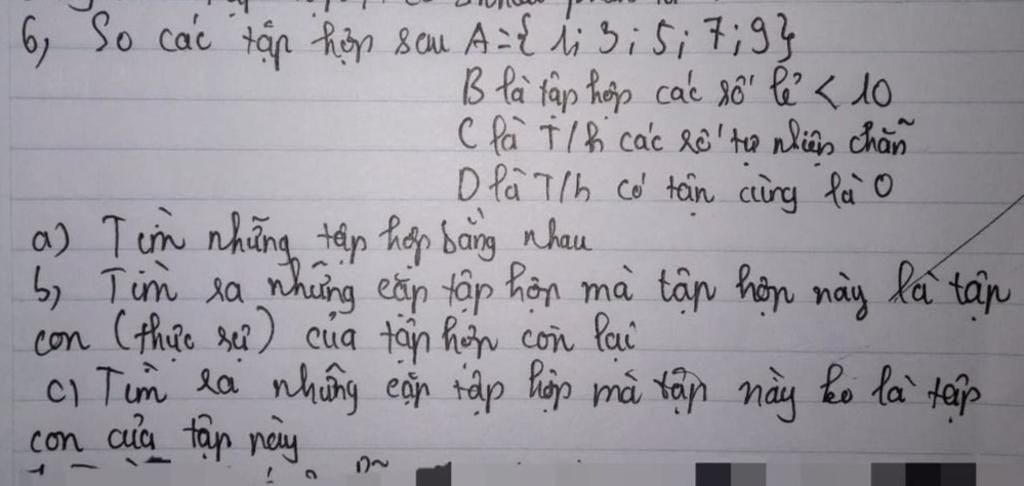 6, So các tập hợp sau A = { 1; 3 ; 5 ; 7 ; 9 }
B là tập hợp các số lẻ < 10
C là T/h các số tự nhiên chẵn
D là T/h có tận cùng là 0
a) Tìm những tập hợp bằng nhau
b, Tìm ra những cặp tập hợp mà tập hợp này là tập
con (thực sự) của tập hợp còn lại
c) Tìm ra những cặp tập hợp mà tập này ko là tập
con của tập này